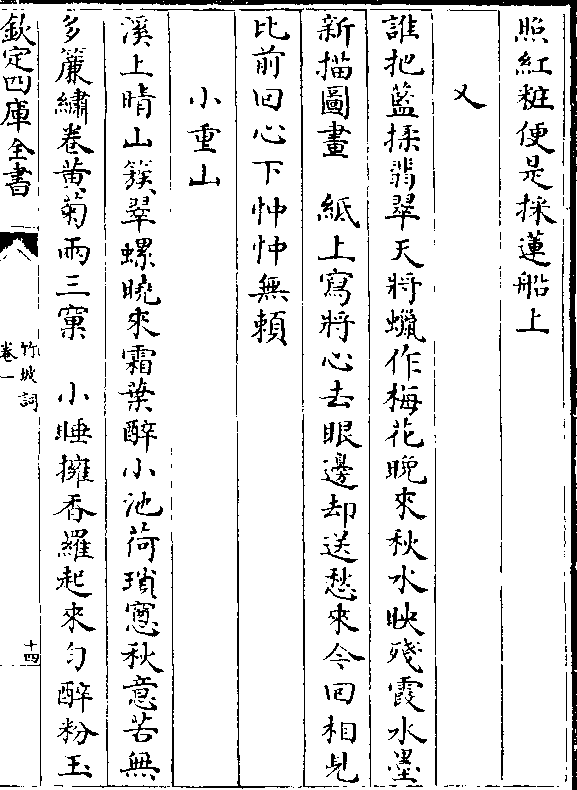 照紅粧便是採蓮船上
又
誰把藍揉翡翠天將蠟作梅花晚來秋水映殘霞水墨
新描圖畫　紙上寫將心去眼邊却送愁來今回相見
比前回心下忡忡無頼
小重山
溪上晴山簇翠螺曉來霜葉醉小池荷瑣窓秋意苦無
多簾繡卷黄菊兩三窠　小睡擁香羅起來匀醉粉玉
欽定四庫全書
竹坡詞
卷一
十四